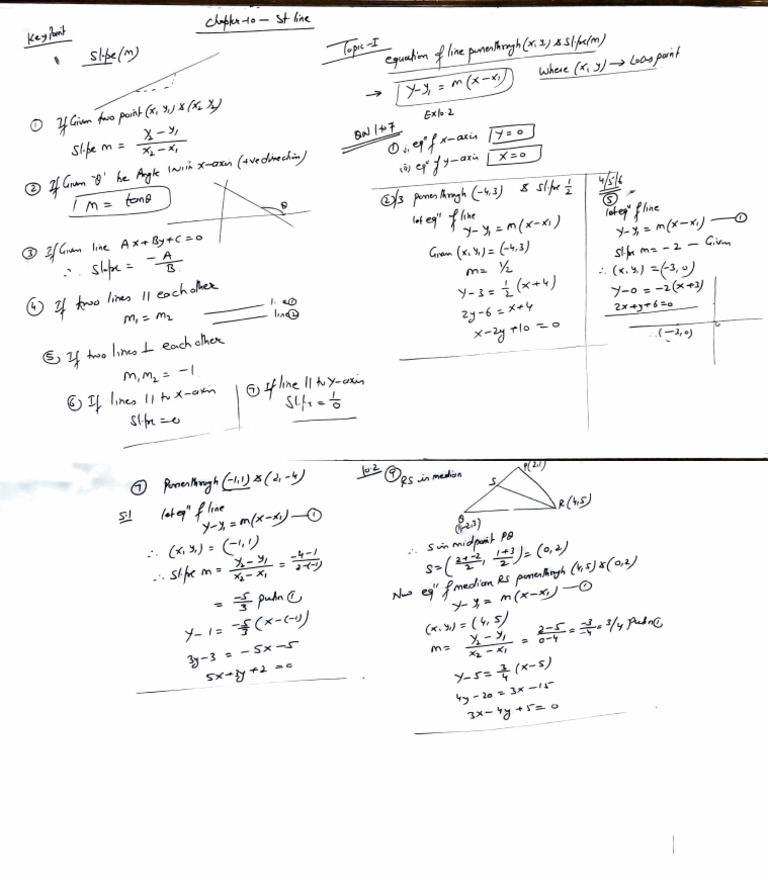 Chapter-10 - St line
Key Point
Slope (m)
① If Given two point (x, y₁) & (x₂ y₂)
Slope m = y₂ - y₁ / x₂ - x₁
② If Given 'θ' be Angle with x-axis (+ve direction)
m = tanθ
θ
③ If Given line Ax + By + C = 0
∴ Slope = -A / B
④ If two lines || each other
m₁ = m₂
line ①
line ②
⑤ If two lines ⊥ each other
m₁ m₂ = -1
⑥ If lines || to x-axis
Slope = 0
⑦ If line || to y-axis
Slope = 1/0
Topic-I
equation of line passes through (x, y₁) & Slope (m)
→ y - y₁ = m(x - x₁)
Where (x, y) → Locus point
EX 10.2
QN 1 to 7
① (i) eqⁿ of x-axis y = 0
(ii) eqⁿ of y-axis x = 0
②/3 passes through (-4,3) & Slope 1/2
let eqⁿ of line
y - y₁ = m(x - x₁)
Given (x, y₁) = (-4,3)
m = 1/2
y - 3 = 1/2 (x + 4)
2y - 6 = x + 4
x - 2y + 10 = 0
4/5/6
⑤
let eqⁿ of line
y - y₁ = m(x - x₁) — ①
Slope m = -2 — Given
∴ (x, y₁) = (-3, 0)
y - 0 = -2(x + 3)
2x + y + 6 = 0
(-3,0)
⑦ Passes through (-1,1) & (2,-4)
Sol
let eqⁿ of line
y - y₁ = m(x - x₁) — ①
∴ (x, y₁) = (-1, 1)
∴ Slope m = y₂ - y₁ / x₂ - x₁ = -4 - 1 / 2 - (-1)
= -5/3 put in ①
y - 1 = -5/3 (x - (-1))
3y - 3 = -5x - 5
5x + 3y + 2 = 0
10.2 ⑨
RS is median
P(2,1)
S
R(4,5)
Q
(-2,3)
∴ S is midpoint PQ
S = (2 + -2 / 2, 1 + 3 / 2) = (0, 2)
Now eqⁿ of median RS passes through (4,5) & (0,2)
y - y₁ = m(x - x₁) — ①
(x, y₁) = (4, 5)
m = y₂ - y₁ / x₂ - x₁ = 2 - 5 / 0 - 4 = -3 / -4 = 3/4 put in ①
y - 5 = 3/4 (x - 5)
4y - 20 = 3x - 15
3x - 4y + 5 = 0